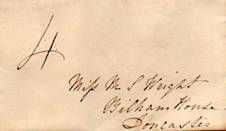 4
Miss M S Wright
Bilham House
Doncaster